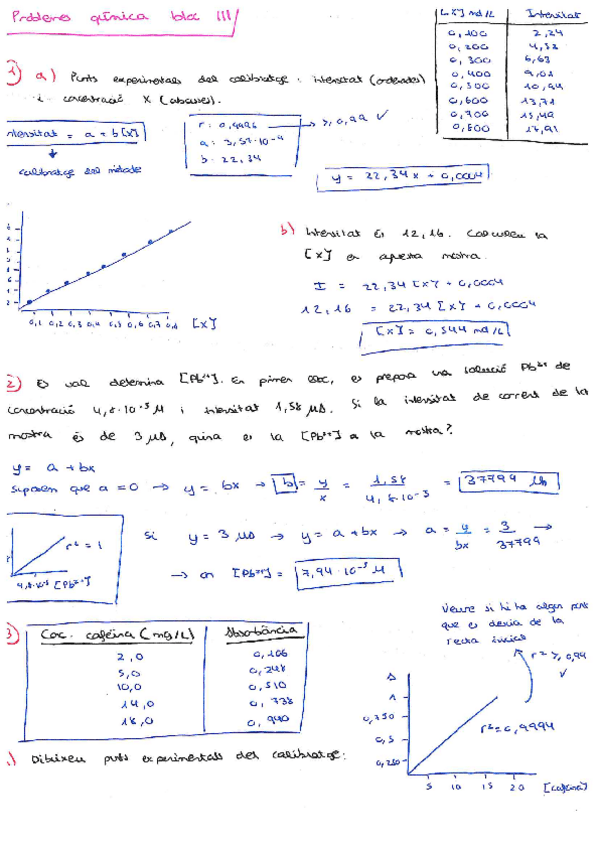 Problemes química bloc III
[X] md/L Intensitat
0,100 2,24
0,200 4,52
0,300 6,63
0,400 9,01
0,500 10,94
0,600 13,71
0,700 15,49
0,800 17,91
1) a) Punts experimentals del calibratge: intensitat (ordenades)
i concentració X (abscisses).
Intensitat = a + b[X]
calibratge del mètode
r = 0,9996 → ≥ 0,99 ✓
a = 3,57·10⁻⁴
b = 22,34
y = 22,34 x + 0,0004
0,1 0,2 0,3 0,4 0,5 0,6 0,7 0,8 [X]
b) Intensitat és 12,16. Calculeu la
[X] en aquesta mostra.
I = 22,34 [X] + 0,0004
12,16 = 22,34 [X] + 0,0004
[X] = 0,544 md/L
2) Es vol determina [Pb²⁺]. En primer lloc, es prepara una solució Pb²⁺ de
concentració 4,8·10⁻⁵ M i intensitat 1,58 µA. Si la intensitat de corrent de la
mostra és de 3 µA, quina és la [Pb²⁺] a la mostra?
y = a + bx
suposem que a = 0 → y = bx → b = y/x = 1,58 / 4,8·10⁻⁵ = 37999
r² = 1
[Pb²⁺]
si y = 3 µA → y = a + bx → a = y/bx = 3/37799 →
→ on [Pb²⁺] = 7,94·10⁻⁵ M
3) Coc. cafeïna (mg/L) Absorbància
2,0 0,106
5,0 0,248
10,0 0,510
14,0 0,738
18,0 0,940
Veure si hi ha algun punt
que es desvia de la
recta
r² ≥ 0,99
✓
A
1
0,750
0,5
0,250
r² = 0,9994
5 10 15 20 [cafeïna]
Dibuixeu punts experimentals del calibratge: